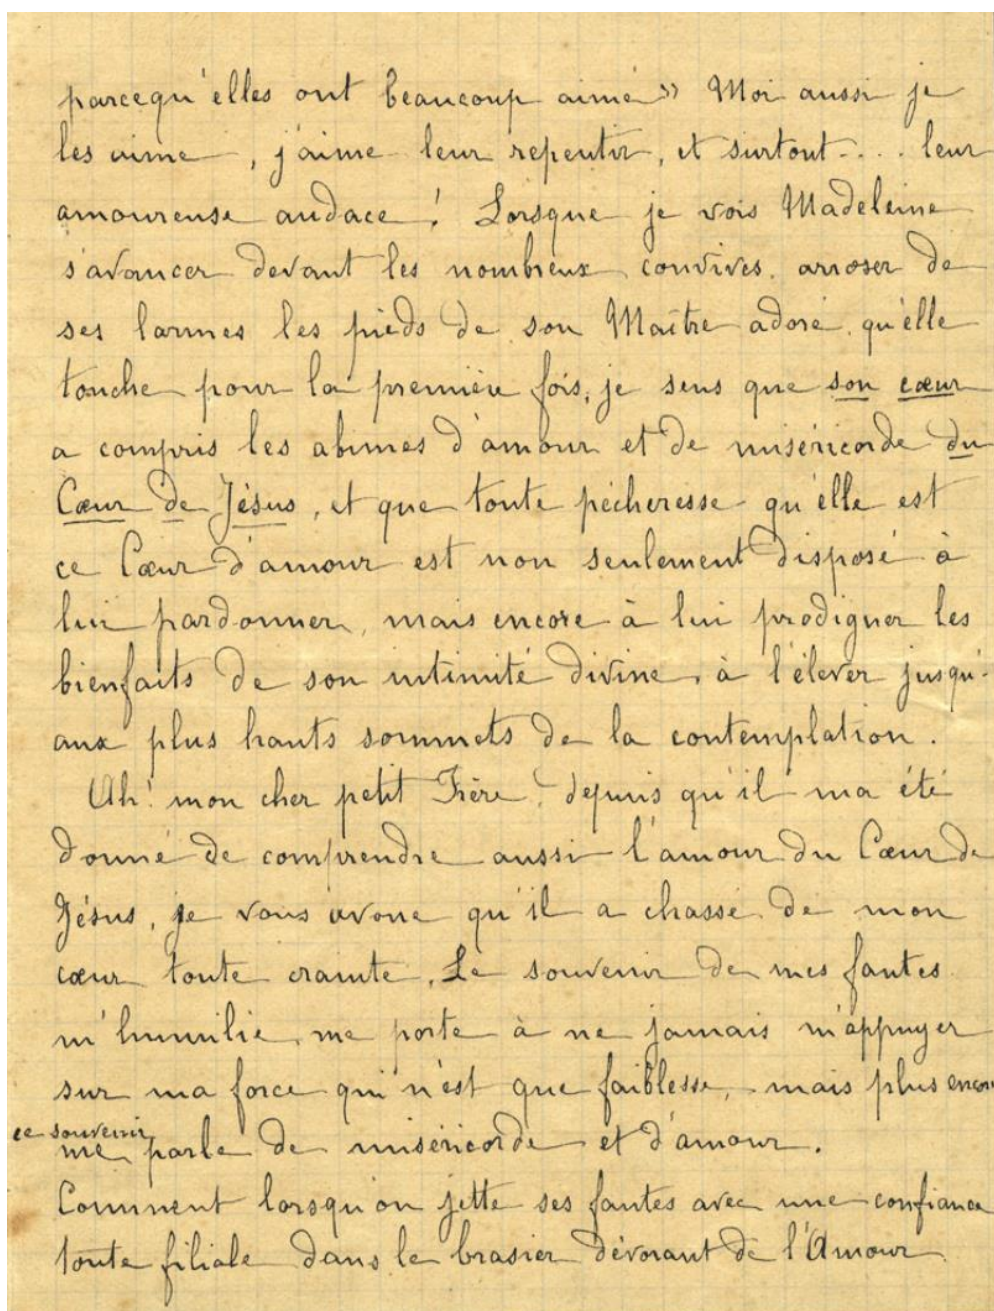 parcequ'elles ont beaucoup aimé» Moi aussi je
les aime, j'aime leur repentir, et surtout.... leur
amoureuse audace! Lorsque je vois Madeleine
s'avancer devant les nombreux convives, arroser de
ses larmes les pieds de son Maître adoré, qu'elle
touche pour la première fois, je sens que son cœur
a compris les abimes d'amour et de miséricorde du
Cœur de Jésus, et que toute pécheresse qu'elle est
ce Cœur d'amour est non seulement disposé à
lui pardonner, mais encore à lui prodiguer les
bienfaits de son intimité divine, à l'élever jusqu'-
aux plus hauts sommets de la contemplation.
Ah! mon cher petit Frère, depuis qu'il m'a été
donné de comprendre aussi l'amour du Cœur de
Jésus, je vous avoue qu'il a chassé de mon
cœur toute crainte. Le souvenir de mes fautes
m'humilie, me porte à ne jamais m'appuyer
sur ma force qui n'est que faiblesse, mais plus encore
ce souvenir me parle de miséricorde et d'amour.
Comment lorsqu'on jette ses fautes avec une confiance
toute filiale dans le brasier dévorant de l'Amour